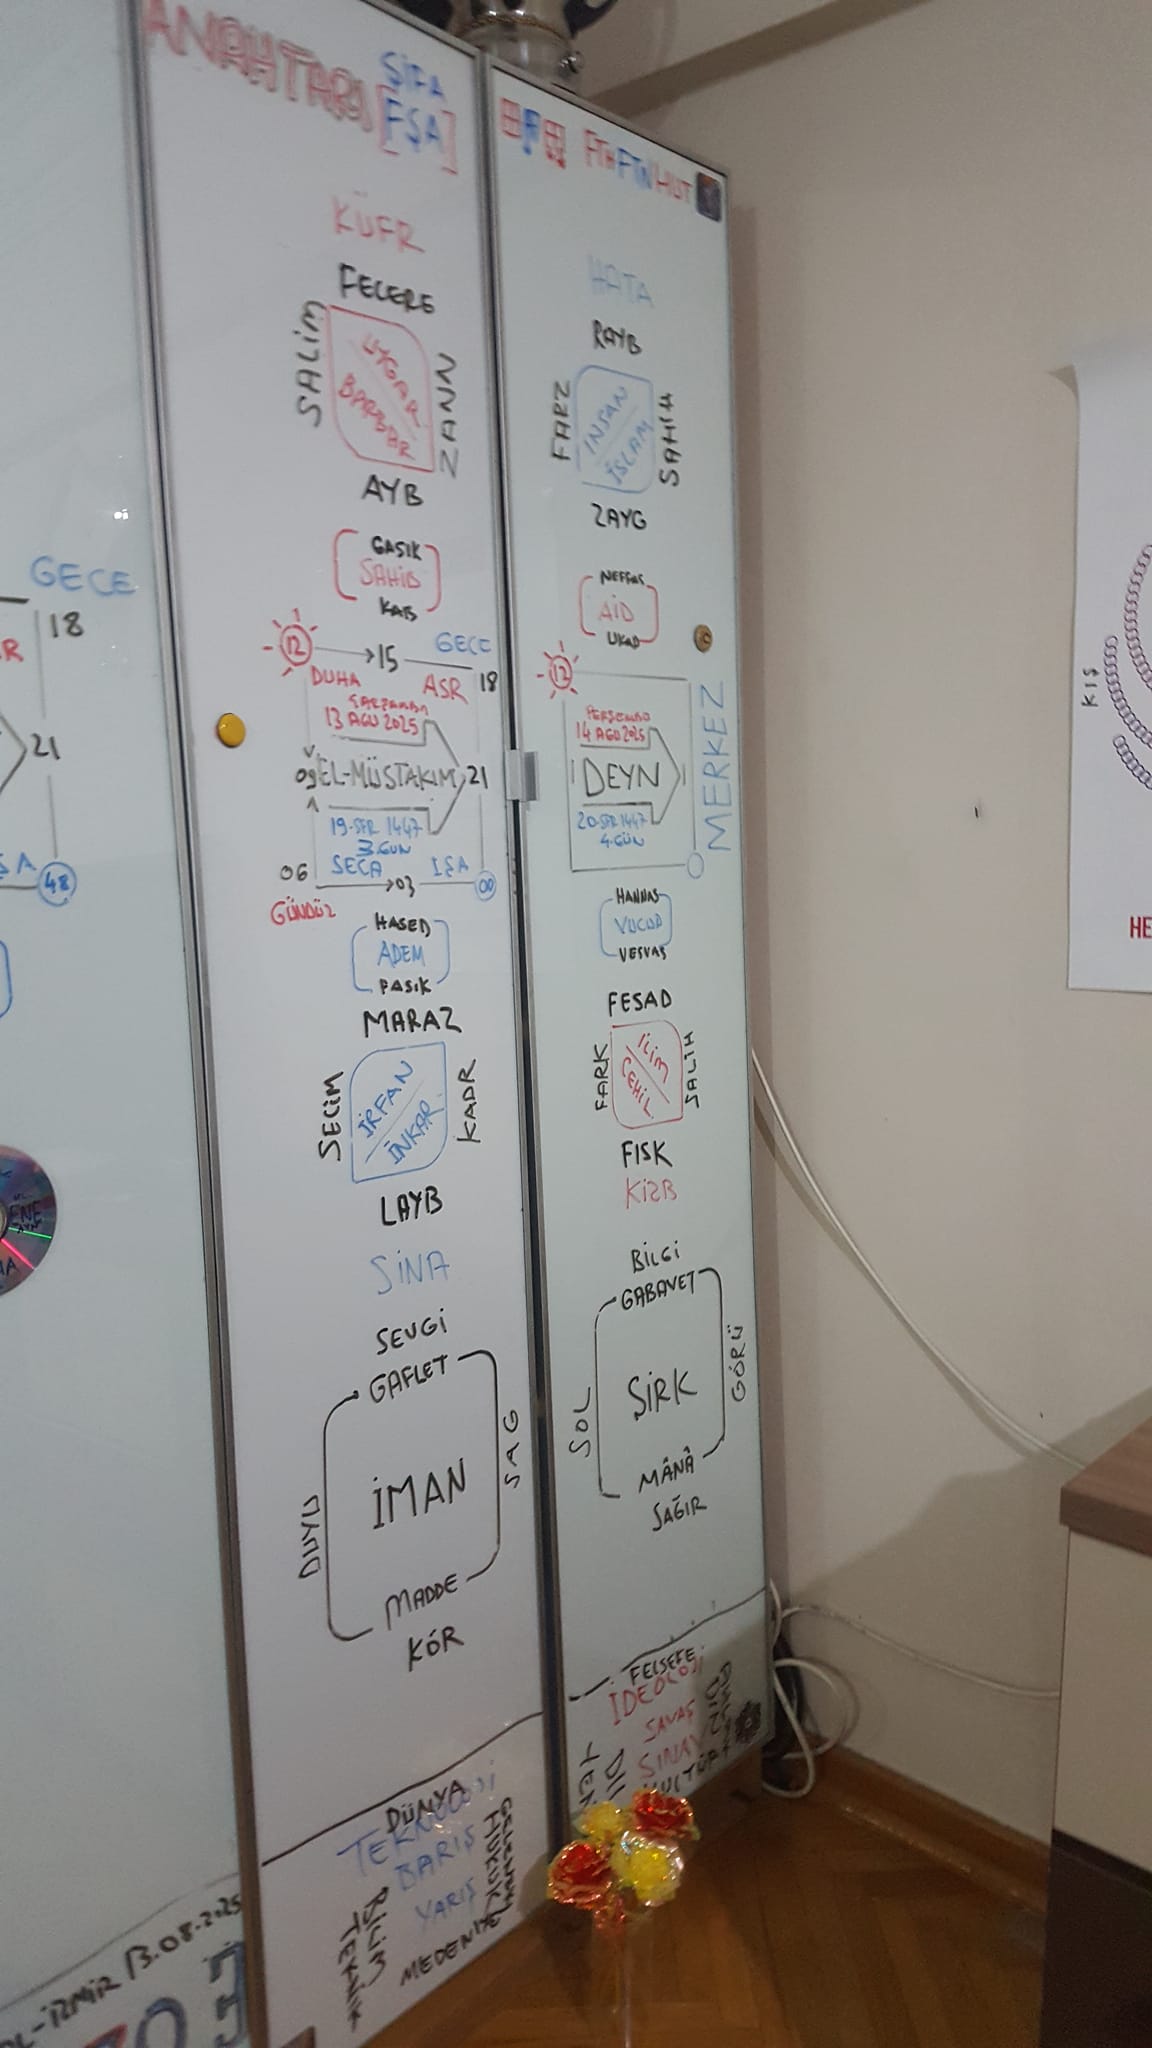 ANAHTARI
ŞİFA
[FŞA]
KÜFR
FECERE
SALİM
UYGAR
BARBAR
ZANN
AYB
GASIK
SAHİB
KAB
12
15
GECE
DUHA
ASR
18
ÇARŞAMBA
13 AGU 2025
09
EL-MÜSTAKIM
21
19-SFR 1447
3.GÜN
06
SECA
03
IŞA
00
GÜNDÜZ
HASED
ADEM
FASIK
MARAZ
SECİM
İRFAN
İNKAR
KADR
LAYB
SİNA
SEVGİ
GAFLET
DUYU
İMAN
SAG
MADDE
KÖR
DÜNYA
TEKNOLOJİ
BARIŞ
YARIŞ
BİLİM
TEKNİK
MEDENİYE
FTH FTN HUT
HATA
RAYB
FARZ
INSAN
İSLAM
SAHIH
ZAYG
NEFFAS
AİD
UKAD
12
PERŞEMBE
14 AGU 2025
DEYN
20-SFR 1447
4.GÜN
MERKEZ
HANNAS
VUCUD
VESVAS
FESAD
FARK
İLİM
CEHİL
SALİH
FISK
KİZB
BİLGİ
GABAVET
SOL
ŞİRK
GÖRÜ
MÂNÂ
SAĞIR
FELSEFE
İDEOLOJİ
SAVAŞ
SINAV
KÜLTÜR
GECE
18
21
48
İZMİR 13.08.2025
KIŞ
HE